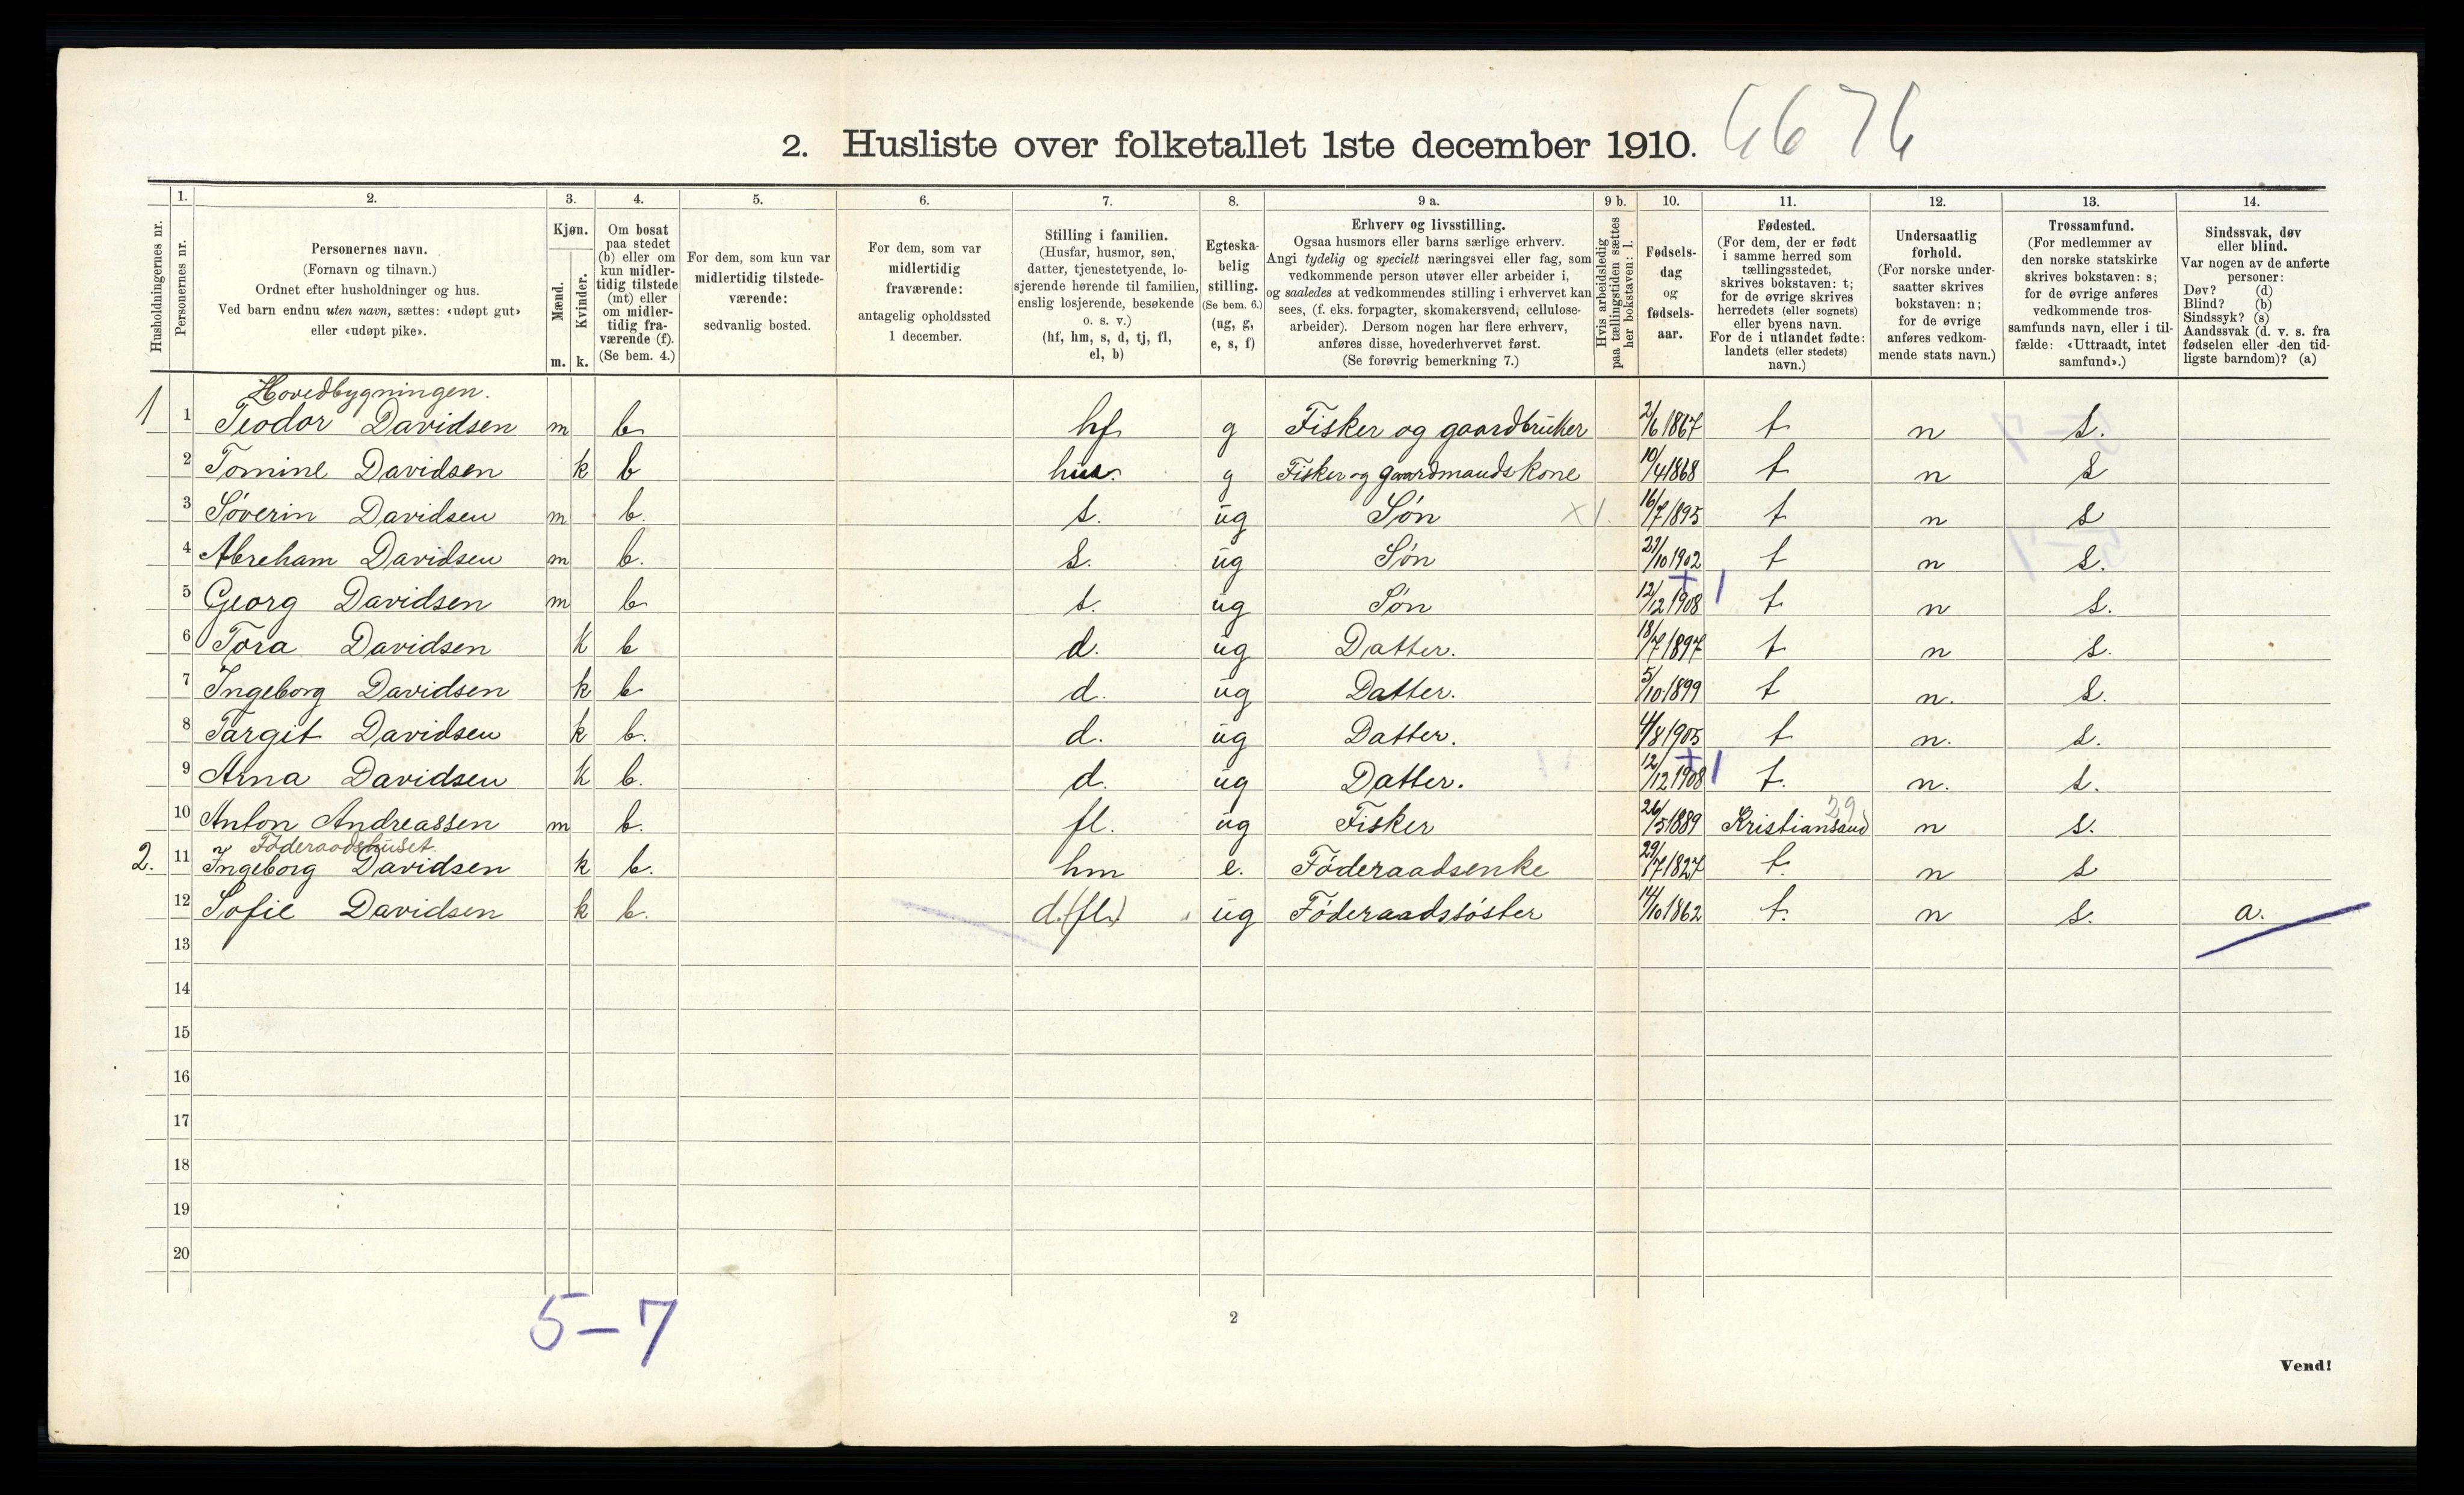 2. Husliste over folketallet 1ste december 1910. 6676
Husholdningernes nr.
1. Personernes nr.
2. Personernes navn. (Fornavn og tilnavn.) Ordnet efter husholdninger og hus. Ved barn endnu uten navn, sættes: «udøpt gut» eller «udøpt pike».
3. Kjøn. Mænd. m. Kvinder. k.
4. Om bosat paa stedet (b) eller om kun midlertidig tilstede (mt) eller om midlertidig fraværende (f). (Se bem. 4.)
5. For dem, som kun var midlertidig tilstedeværende: sedvanlig bosted.
6. For dem, som var midlertidig fraværende: antagelig opholdssted 1 december.
7. Stilling i familien. (Husfar, husmor, søn, datter, tjenestetyende, losjerende hørende til familien, enslig losjerende, besøkende o. s. v.) (hf, hm, s, d, tj, fl, el, b)
8. Egteskabelig stilling. (Se bem. 6.) (ug, g, e, s, f)
9 a. Erhverv og livsstilling. Ogsaa husmors eller barns særlige erhverv. Angi tydelig og specielt næringsvei eller fag, som vedkommende person utøver eller arbeider i, og saaledes at vedkommendes stilling i erhvervet kan sees, (f. eks. forpagter, skomakersvend, cellulosearbeider). Dersom nogen har flere erhverv, anføres disse, hovederhvervet først. (Se forøvrig bemerkning 7.)
9 b. Hvis arbeidsledig paa tællingstiden sættes her bokstaven: l.
10. Fødselsdag og fødselsaar.
11. Fødested. (For dem, der er født i samme herred som tællingsstedet, skrives bokstaven: t; for de øvrige skrives herredets (eller sognets) eller byens navn. For de i utlandet fødte: landets (eller stedets) navn.)
12. Undersaatlig forhold. (For norske undersaatter skrives bokstaven: n; for de øvrige anføres vedkommende stats navn.)
13. Trossamfund. (For medlemmer av den norske statskirke skrives bokstaven: s; for de øvrige anføres vedkommende trossamfunds navn, eller i tilfælde: «Uttraadt, intet samfund».)
14. Sindssvak, døv eller blind. Var nogen av de anførte personer: Døv? (d) Blind? (b) Sindssyk? (s) Aandssvak (d. v. s. fra fødselen eller den tidligste barndom)? (a)
Hovedbygningen.
1 1 Teodor Davidsen m b hf g Fisker og gaardbruker 2/6 1867 t n s.
2 Tomine Davidsen k b hus. g Fisker og gaardmandskone 10/4 1868 t n s
3 Søverin Davidsen m b. s. ug Søn x 1. 16/7 1895 t n s
4 Abreham Davidsen m b. s. ug Søn /10 1902 t n s.
5 Georg Davidsen m b s. ug Søn 12/12 1908 + 1 t n s.
6 Tora Davidsen k b d. ug Datter. 18/7 1897 t n s.
7 Ingeborg Davidsen k b d. ug Datter. 5/10 1899 t n. s.
8 Targit Davidsen k b. d. ug Datter. 4/8 1905 t n. s.
9 Arna Davidsen k b. d. ug Datter. 12/12 1908 + 1 t. n. s.
10 Anton Andreassen m b. fl. ug Fisker 26/5 1889 Kristiansand 29 n s.
Føderaadshuset.
2. 11 Ingeborg Davidsen k b. hm e. Føderaadsenke 29/7 1827 t. n s
12 Sofie Davidsen k b. d.(fl.) ug Føderaadssøster 14/10 1862 t. n s. a.
13
14
15
16
17
18
19
20
5-7
2
Vend!